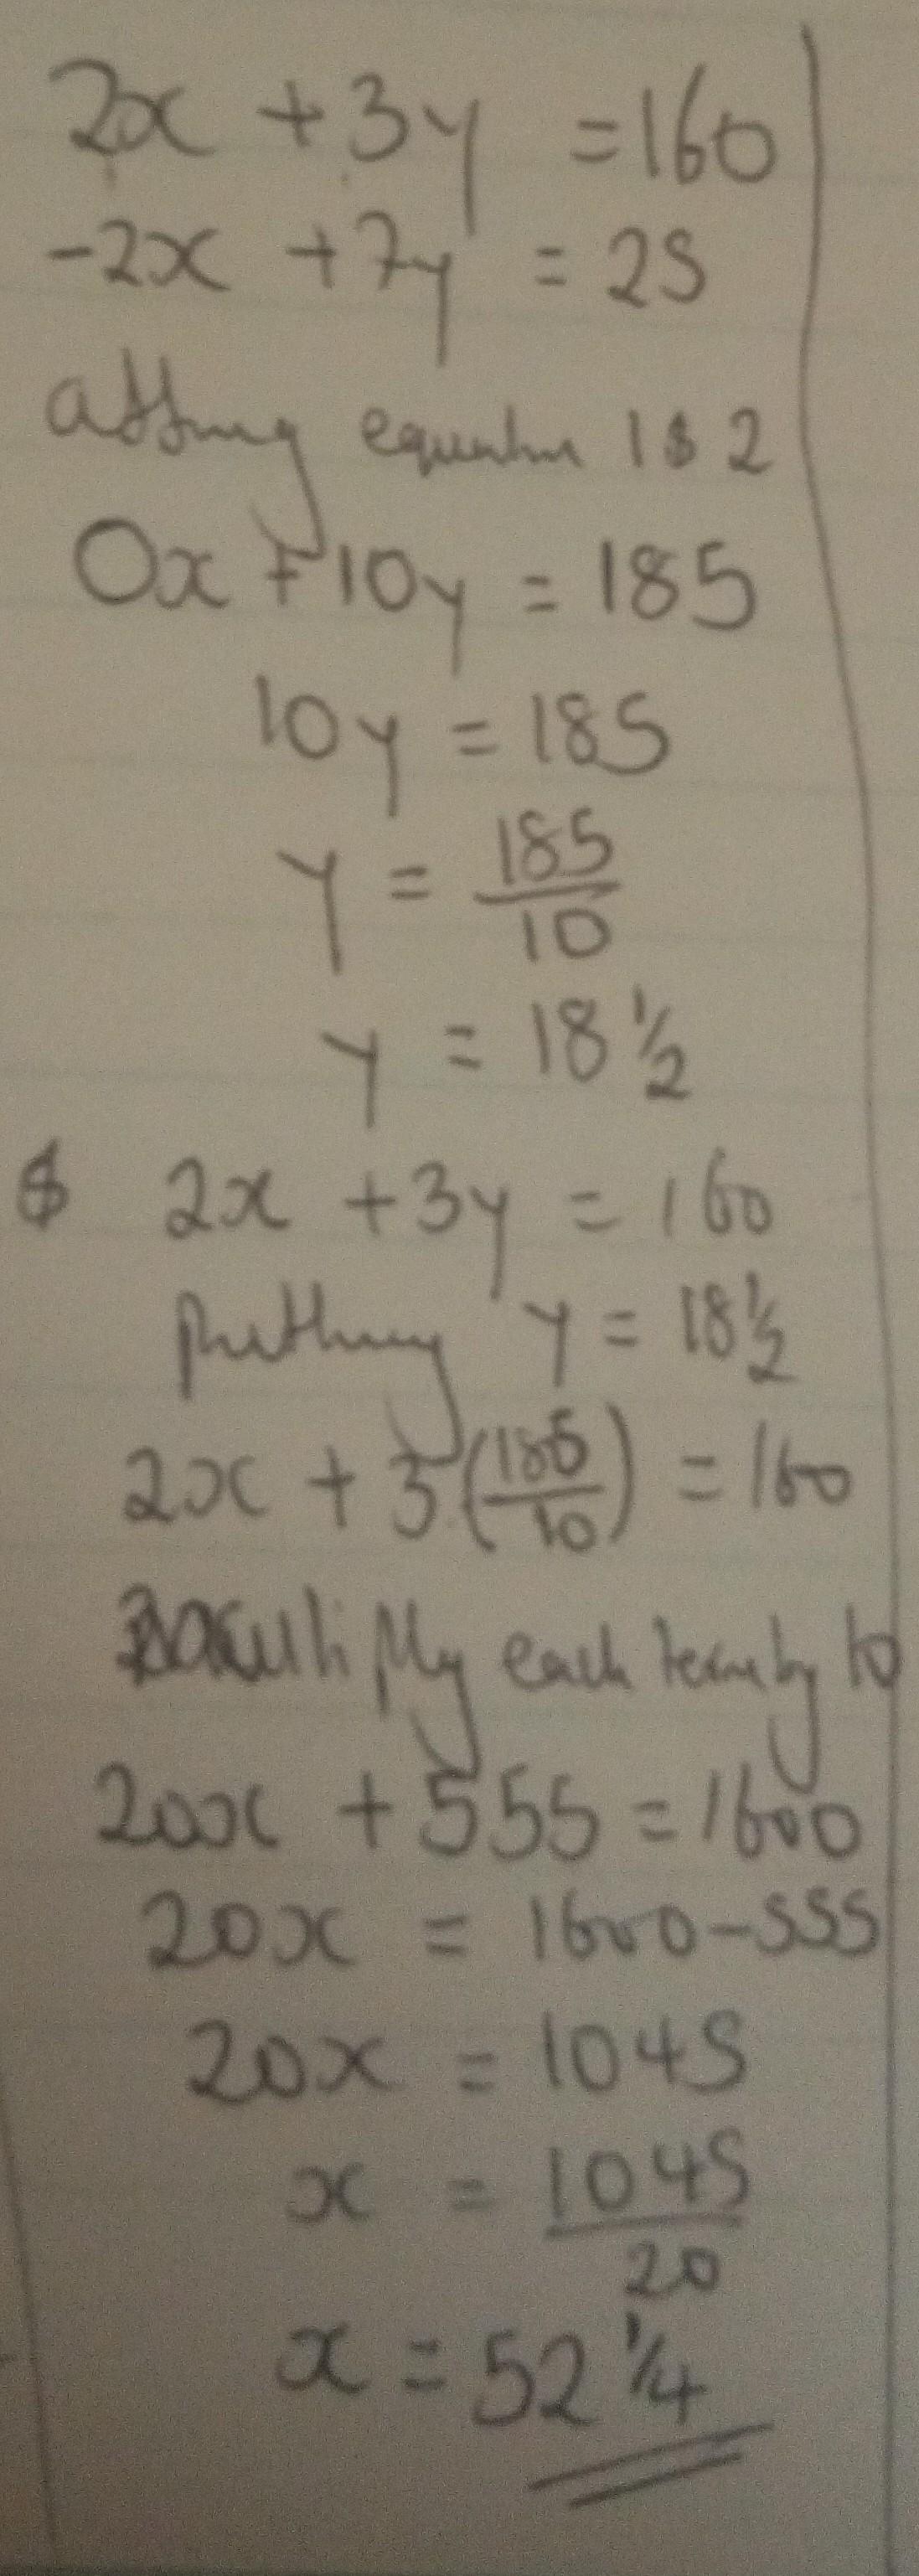 2x + 3y = 160
-2x + 7y = 25
adding equation 1 & 2
0x + 10y = 185
10y = 185
y = 185/10
y = 18 1/2
& 2x + 3y = 160
Putting y = 18 1/2
2x + 3(185/10) = 160
Multiply each term by 10
20x + 555 = 1600
20x = 1600 - 555
20x = 1045
x = 1045/20
x = 52 1/4